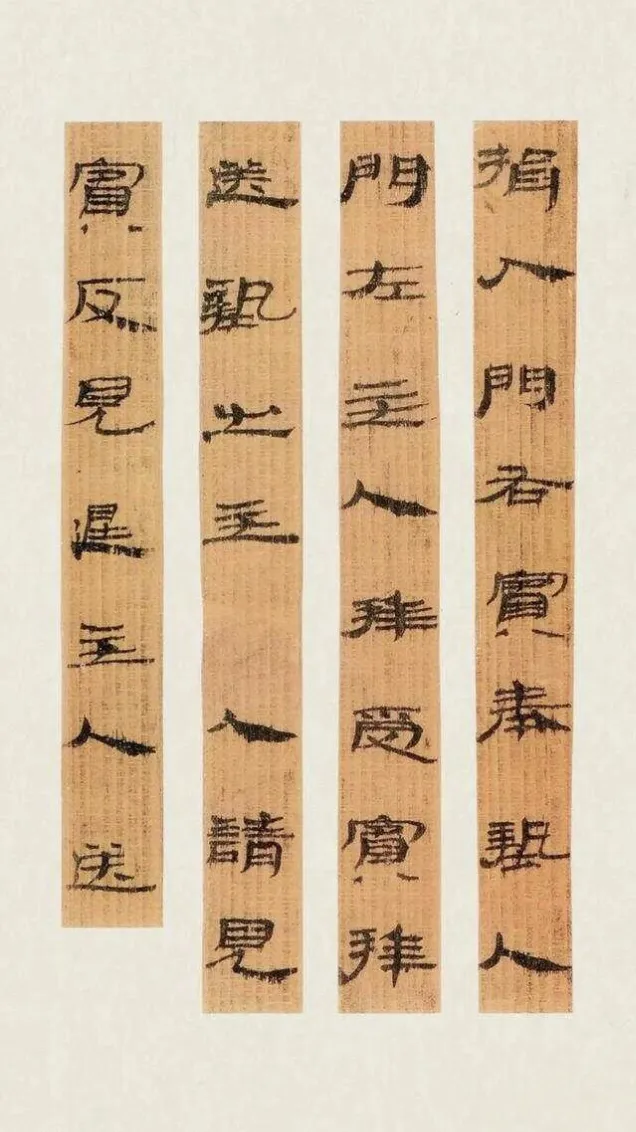 揖人門右賓奉摯人
門左主人拜受賓拜
送摯出主人請見
賓反見退主人送